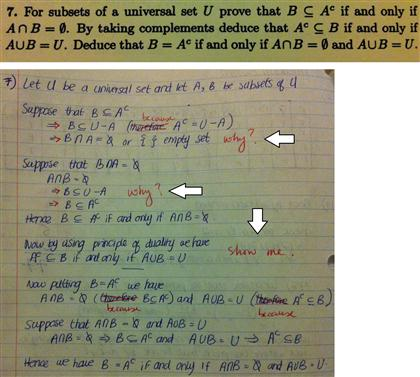 7. For subsets of a universal set U prove that B ⊆ Aᶜ if and only if
A ∩ B = ∅. By taking complements deduce that Aᶜ ⊆ B if and only if
A∪B = U. Deduce that B = Aᶜ if and only if A∩B = ∅ and A∪B = U.
7) Let U be a universal set and let A, B be subsets of U
Suppose that B ⊆ Aᶜ
because
⇒ B ⊆ U-A (therefore Aᶜ = U-A)
⇒ B ∩ A = ∅ or { } empty set why?
Suppose that B∩A = ∅
A∩B = ∅
⇒ B ⊆ U-A why?
⇒ B ⊆ Aᶜ
Hence B ⊆ Aᶜ if and only if A∩B = ∅
Now by using principle of duality we have
Aᶜ ⊆ B if and only if A∪B = U
show me.
Now putting B = Aᶜ we have
A∩B = ∅ (therefore B ⊆ Aᶜ) and A∪B = U (therefore Aᶜ ⊆ B)
because because
Suppose that A∩B = ∅ and A∪B = U
A∩B = ∅ ⇒ B ⊆ Aᶜ and A∪B = U ⇒ Aᶜ ⊆ B
Hence we have B = Aᶜ if and only if A∩B = ∅ and A∪B = U